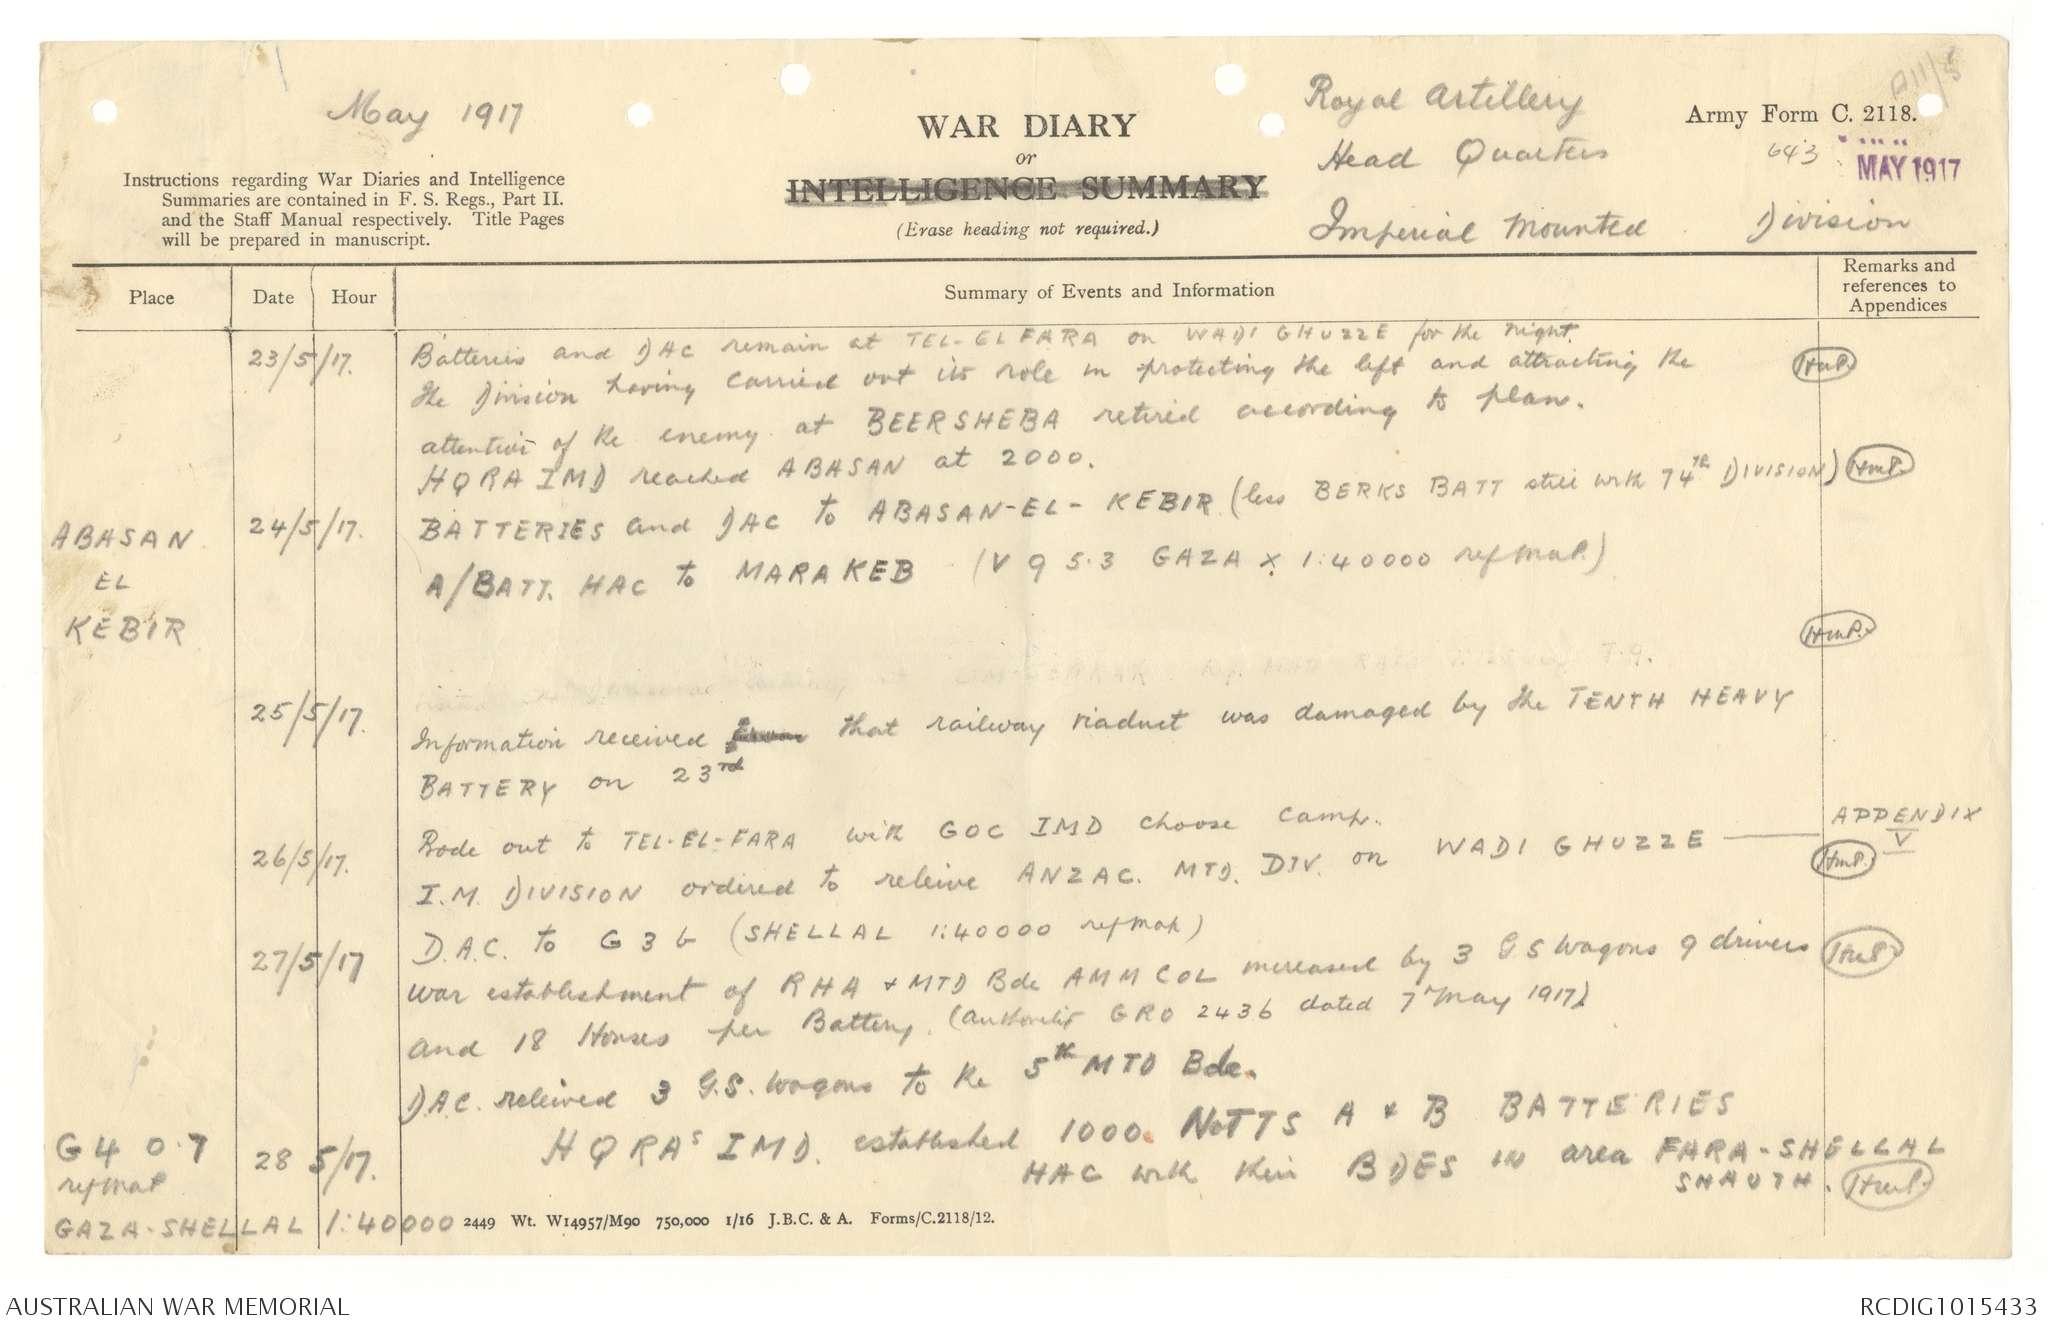 May 1917
WAR DIARY
or
INTELLIGENCE SUMMARY
(Erase heading not required.)
Royal Artillery
Head Quarters
Imperial Mounted Division
Army Form C. 2118.
643
MAY 1917
Instructions regarding War Diaries and Intelligence
Summaries are contained in F. S. Regs., Part II.
and the Staff Manual respectively. Title Pages
will be prepared in manuscript.
Place Date Hour Summary of Events and Information
Remarks and
references to
Appendices
23/5/17. Batteries and DAC remain at TEL-EL FARA on WADI GHUZZE for the night.
The Division having carried out its role in protecting the left and attracting the
attention of the enemy at BEERSHEBA retired according to plan.
HQRA IMD reached ABASAN at 2000.
ABASAN
EL
KEBIR
24/5/17. BATTERIES and DAC to ABASAN-EL-KEBIR (less BERKS BATT still with 74th DIVISION)
A/BATT. HAC to MARAKEB (V 9 5.3 GAZA X 1:40000 ref map.)
25/5/17. Information received that railway viaduct was damaged by the TENTH HEAVY
BATTERY on 23rd
26/5/17. Rode out to TEL-EL-FARA with GOC IMD choose camp.
I.M. DIVISION ordered to releive ANZAC. MTD. DIV. on WADI GHUZZE
APPENDIX
V
27/5/17 D.A.C. to G 3 b (SHELLAL 1:40000 ref map)
War establishment of RHA & MTD Bde AMM COL increased by 3 G S Wagons 9 drivers
and 18 Horses per Battery. (Authority GRO 2436 dated 7 May 1917)
DAC. releived 3 G.S. Wagons to the 5th MTD Bde.
G 4 0.7
ref map
GAZA-SHELLAL 1:40000
28 5/17. HQRA's IMD. established 1000. NOTTS A & B BATTERIES
HAC with their BDES in area FARA-SHELLAL
SHAUTH.
HmP.
HmP.
HmP.
HmP.
HmP.
HmP.
2449 Wt. W14957/M90 750,000 1/16 J.B.C. & A. Forms/C.2118/12.
AUSTRALIAN WAR MEMORIAL
RCDIG1015433